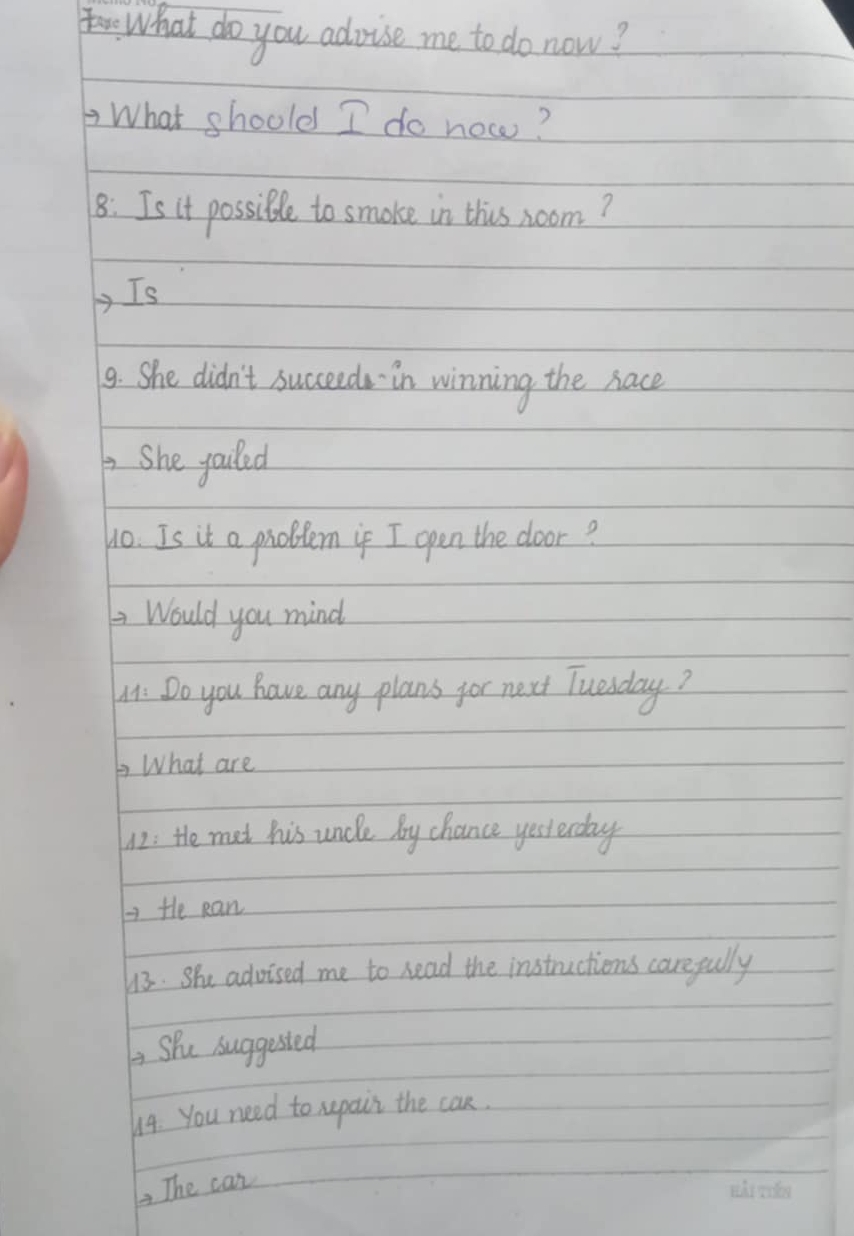 What do you advise me to do now?
→ What should I do now?
8: Is it possible to smoke in this room?
→ Is
9. She didn't succeeds in winning the race
→ She failed
10. Is it a problem if I open the door?
→ Would you mind
11: Do you have any plans for next Tuesday?
→ What are
12: He met his uncle by chance yesterday
→ He ran
13. She advised me to read the instructions carefully
→ She suggested
14. You need to repair the car.
→ The car
HẢI TIẾN